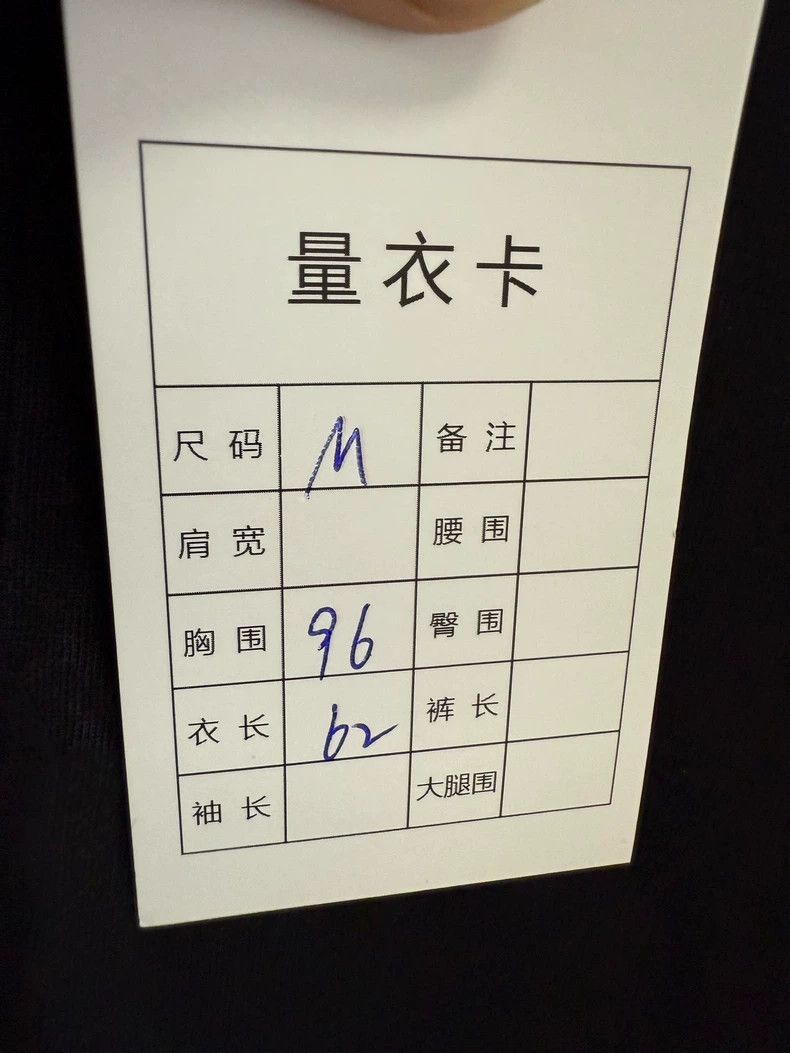 量衣卡
尺码 M 备注
肩宽 腰围
胸围 96 臀围
衣长 62 裤长
袖长 大腿围